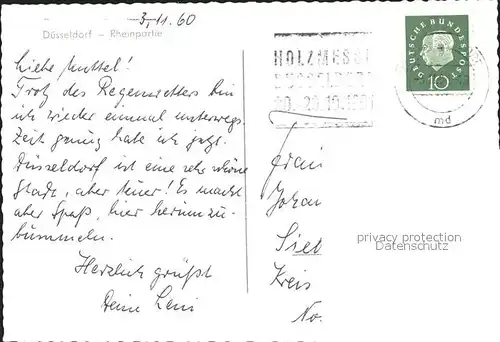 3.11.60
Düsseldorf – Rheinpartie
Liebe Muttel!
Trotz des Regenwetters bin
ich wieder einmal unterwegs.
Zeit genug habe ich jetzt.
Düsseldorf ist eine sehr schöne
Stadt, aber teuer! Es macht
aber Spaß, hier herumzu-
bummeln.
Herzlich grüßt
Deine Leni
HOLZMESSE
DÜSSELDORF
DEUTSCHE BUNDESPOST
10
md
Frau
Johan
Sieb
Kreis
No.
privacy protection
Datenschutz